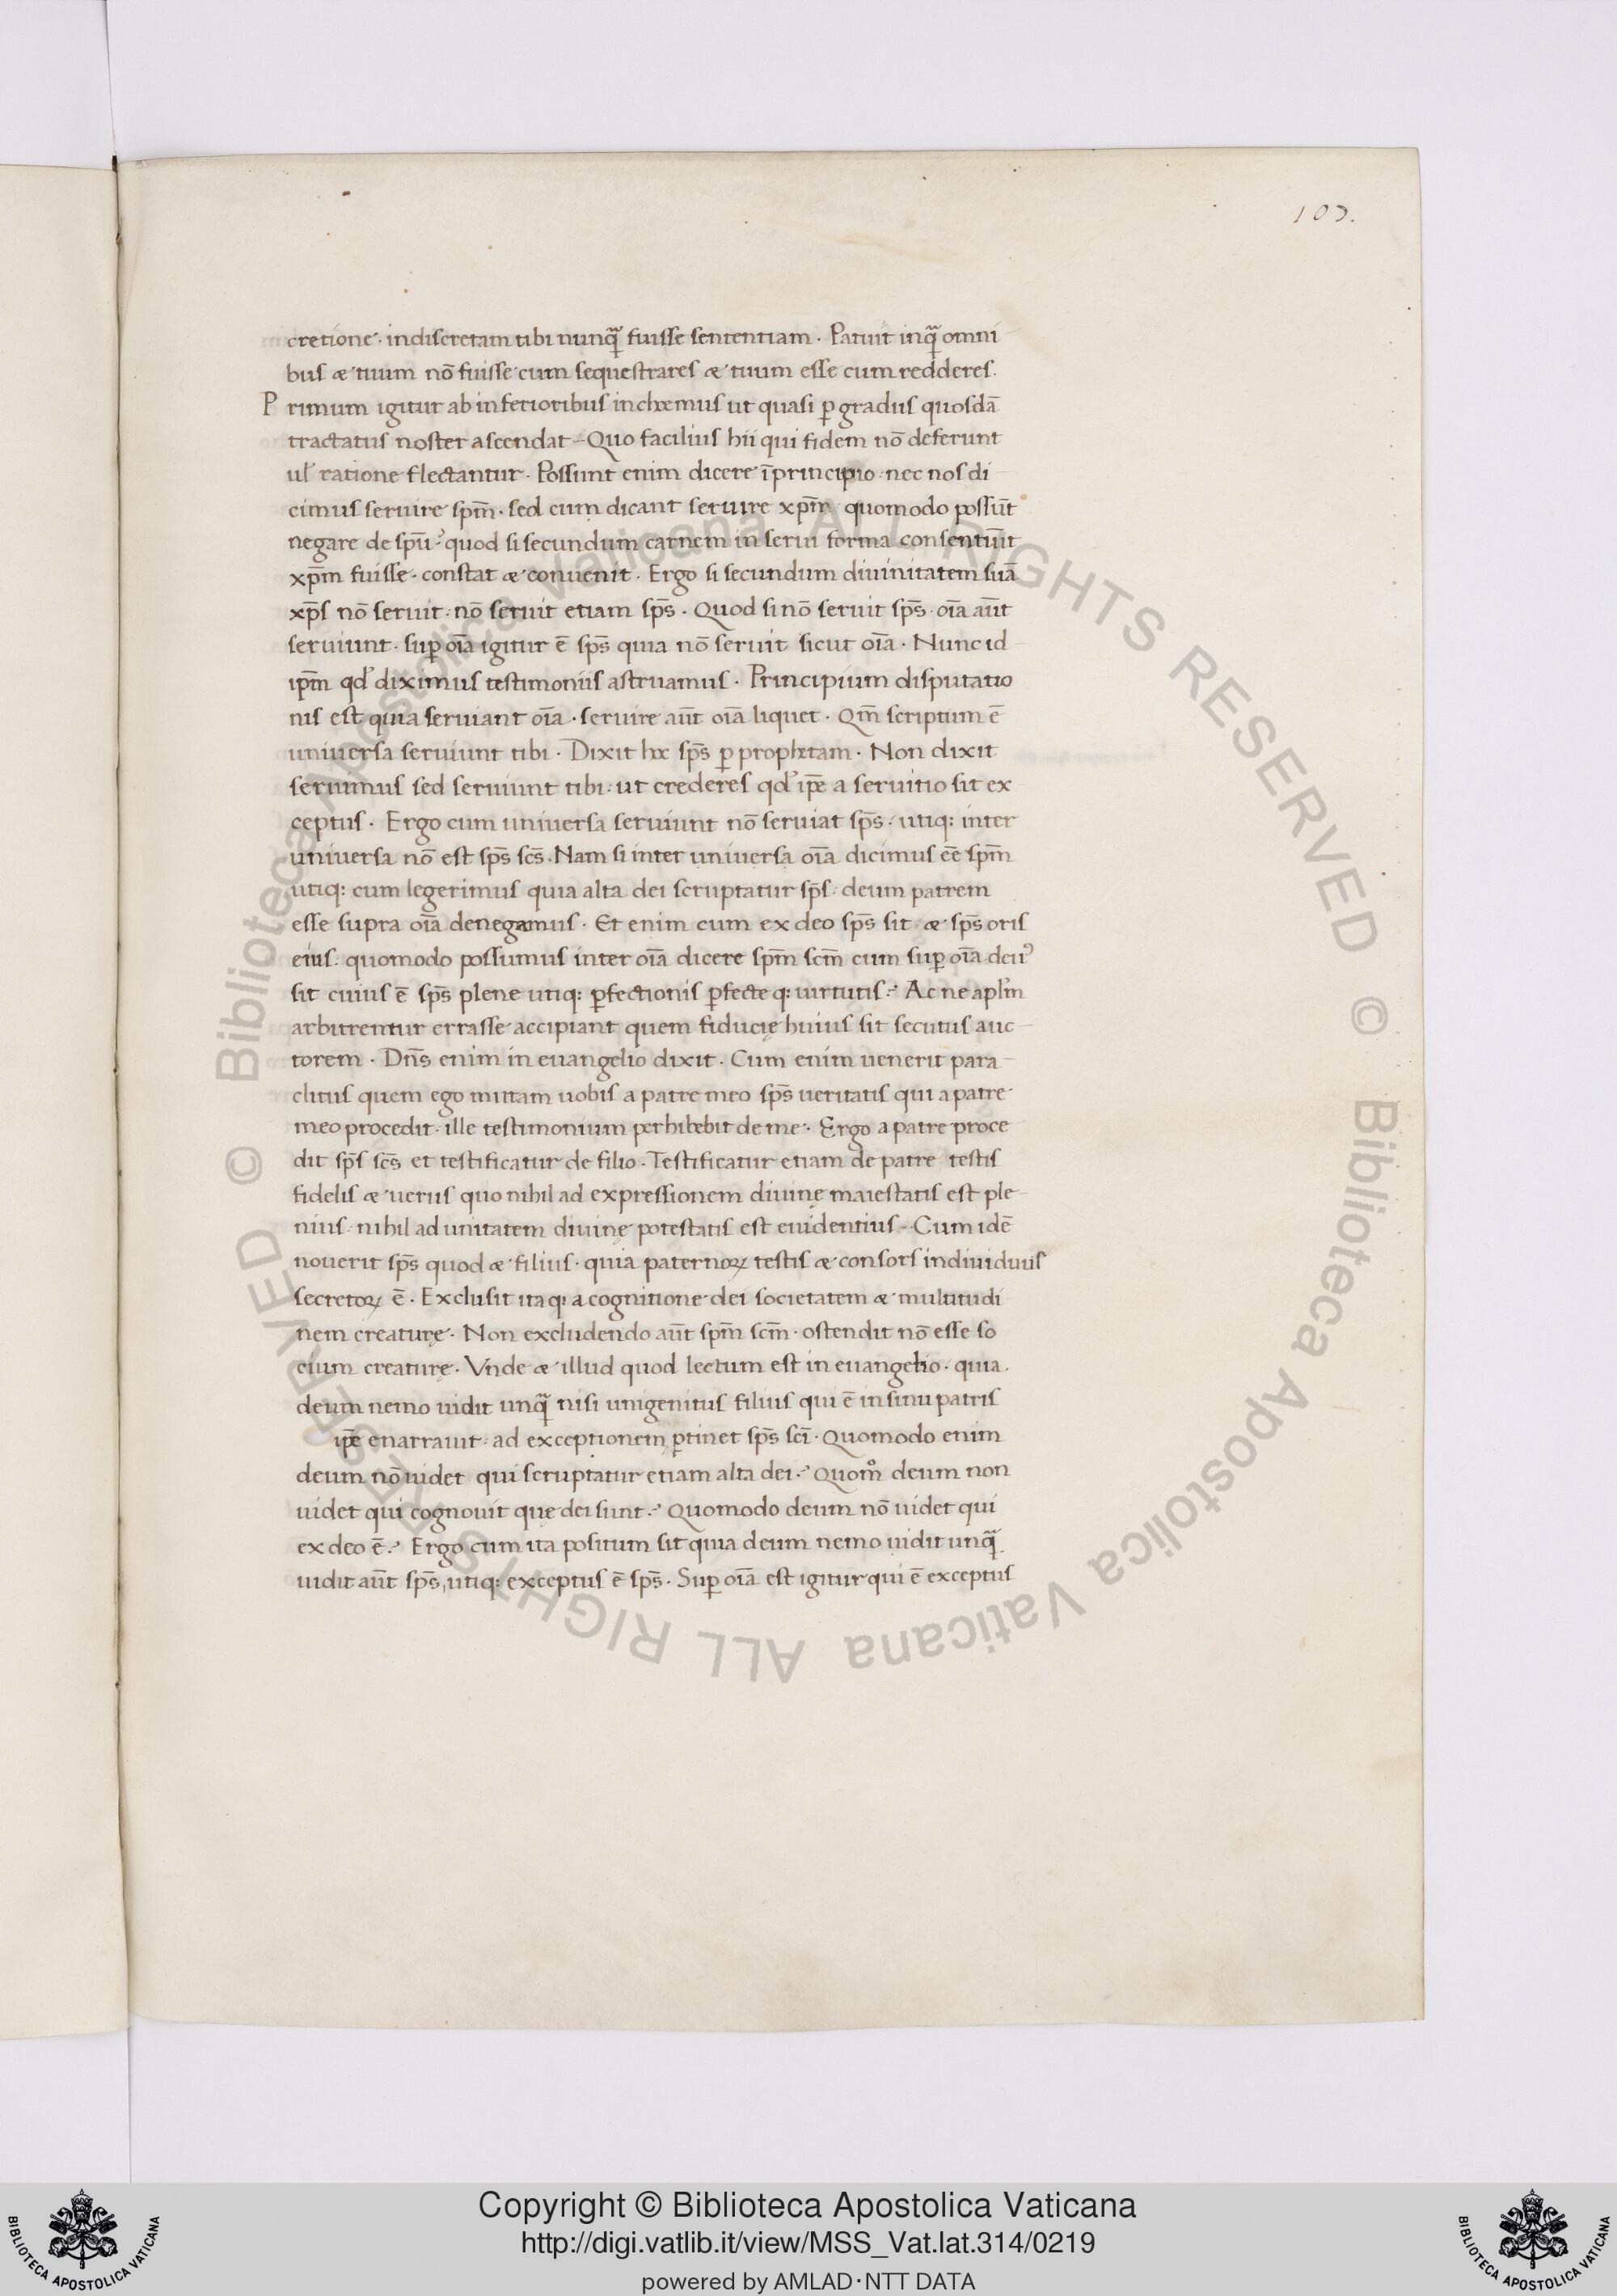 107.
cretione· indiscretam tibi nunq̃ fuisse sententiam · Patuit inq̃ omni
bus æ tuum nō fuisse cum sequestrares æ tuum esse cum redderes.
Primum igitur ab inferioribus inchoemus ut quasi ꝑ gradus quosdā
tractatus noster ascendat – Quo facilius hii qui fidem nō deferunt
ul' ratione flectantur · Possunt enim dicere ī principio · nec nos di
cimus seruire spm̄ · sed cum dicant seruire xpm̄ quomodo possūt
negare de spū? quod si secundum carnem in serui forma consentiūt
xpm̄ fuisse · constat æ conuenit · Ergo si secundum diuinitatem suā
xps̄ nō seruit · nō seruit etiam sps̄ · Quod si nō seruit sps̄ · oīa aūt
seruiunt · suꝑ oīa igitur ē sps̄ quia nō seruit sicut oīa · Nunc id
ipm̄ qd' diximus testimoniis astruamus · Principium disputatio
nis est quia seruiant oīa · seruire aūt oīa liquet · Qm̄ scriptum ē
uniuersa seruiunt tibi · Dixit hoc sps̄ ꝑ prophetam · Non dixit
seruimus sed seruiunt tibi · ut crederes qd' ip̄e a seruitio sit ex
ceptus · Ergo cum uniuersa seruiunt nō seruiat sps̄ · utiq: inter
uniuersa nō est sps̄ scs̄ · Nam si inter uniuersa oīa dicimus eē spm̄
utiq: cum legerimus quia alta dei scruptatur sps̄ · deum patrem
esse supra oīa denegamus · Et enim cum ex deo sps̄ sit æ sps̄ oris
eius · quomodo possumus inter oīa dicere spm̄ scm̄ cum suꝑ oīa deus
sit cuius ē sps̄ plene utiq: ꝑfectionis ꝑfecte q: uirtutis? Ac ne apl'm
arbitrentur errasse accipiant quem fiducię huius sit secutus auc
torem · Dn̄s enim in euangelio dixit · Cum enim uenerit para
clitus quem ego mittam uobis a patre meo sps̄ ueritatis qui a patre
meo procedit · ille testimonium perhibebit de me · Ergo a patre proce
dit sps̄ scs̄ et testificatur de filio · Testificatur etiam de patre testis
fidelis æ uerus quo nihil ad expressionem diuinę maiestatis est ple
nius · nihil ad unitatem diuinę potestatis est euidentius – Cum idē
nouerit sps̄ quod æ filius · quia paternoꝝ testis æ consors indiuiduus
secretoꝝ ē · Exclusit itaq: a cognitione dei societatem æ multitudi
nem creaturę · Non excludendo aūt spm̄ scm̄ · ostendit nō esse so
cium creaturę · Vnde æ illud quod lectum est in euangelio · quia
deum nemo uidit unq̃ nisi unigenitus filius qui ē in sinu patris
ip̄e enarrauit · ad exceptionem ꝑtinet sps̄ scī · Quomodo enim
deum nō uidet qui scruptatur etiam alta dei? Quomº deum non
uidet qui cognouit quę dei sunt? Quomodo deum nō uidet qui
ex deo ē? Ergo cum ita positum sit quia deum nemo uidit unq̃
uidit aūt sps̄, utiq: exceptus ē sps̄ · Suꝑ oīa est igitur qui ē exceptus
© Biblioteca Apostolica Vaticana ALL RIGHTS RESERVED © Biblioteca Apostolica Vaticana ALL RIGHTS RESERVED
Copyright © Biblioteca Apostolica Vaticana
http://digi.vatlib.it/view/MSS_Vat.lat.314/0219
powered by AMLAD·NTT DATA
BIBLIOTECA APOSTOLICA VATICANA
BIBLIOTECA APOSTOLICA VATICANA